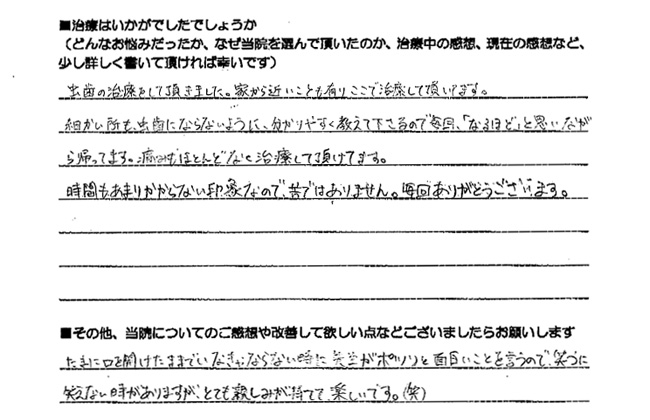 ■治療はいかがでしたでしょうか
（どんなお悩みだったか、なぜ当院を選んで頂いたのか、治療中の感想、現在の感想など、
少し詳しく書いて頂ければ幸いです）
虫歯の治療をして頂きました。家から近いことも有りここで治療して頂いてます。
細かい所も、虫歯にならないように、分かりやすく教えて下さるので毎回、「なるほど」と思いなが
ら帰ってます。痛みもほとんどなく治療して頂けてます。
時間もあまりかからない印象なので、苦ではありません。毎回ありがとうございます。
■その他、当院についてのご感想や改善して欲しい点などございましたらお願いします
たまに口を開けたままでいなきゃならない時に先生がボソッと面白いことを言うので、笑うに
笑えない時がありますが、とても親しみが持てて楽しいです。(笑)